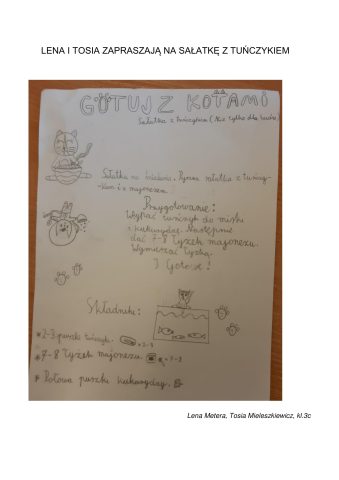 LENA I TOSIA ZAPRASZAJĄ NA SAŁATKĘ Z TUŃCZYKIEM
GOTUJ Z KOTAMI
Sałatka z tuńczykiem (Nie tylko dla kotów)
Sałatka na śniadanie. Pyszna sałatka z tuńczy-
-kiem i z majonezem
Przygotowanie:
Wsypać tuńczyk do miski
z kukurydzą. Następnie
dać 7-8 łyżek majonezu.
Wymieszać łyżką.
I Gotowe!
Składniki:
* 2-3 puszki tuńczyka. = 2-3
* 7-8 łyżek majonezu. = 7-8
* Połowa puszki kukurydzy.
Lena Metera, Tosia Mieleszkiewicz, kl.3c